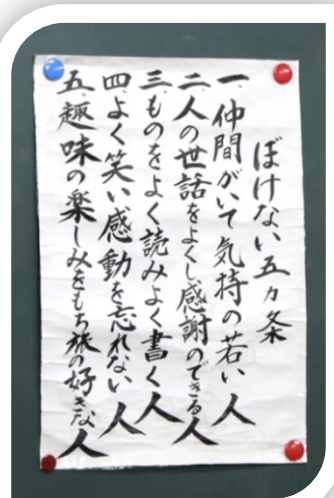 ぼけない五カ条
一、仲間がいて気持の若い人
二、人の世話をよくし感謝のできる人
三、ものをよく読みよく書く人
四、よく笑い感動を忘れない人
五、趣味の楽しみをもち旅の好きな人